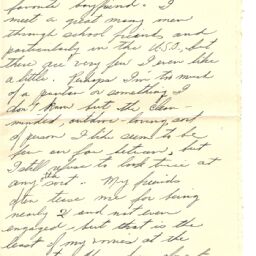 favorite boyfriend. I
meet a great many men
through school friends and
particularly in the U.S.O. but
there are very few I even like
a little. Perhaps I'm too much
of a or something I
don't know but the clean-
minded, outdoor-loving sort
of person I like seem to be
few an far between, but
I still refuse to look twice at
any other sort. My friends
often tease me for being
nearly 21 and not even
engaged, but that is the
least of my worries at the